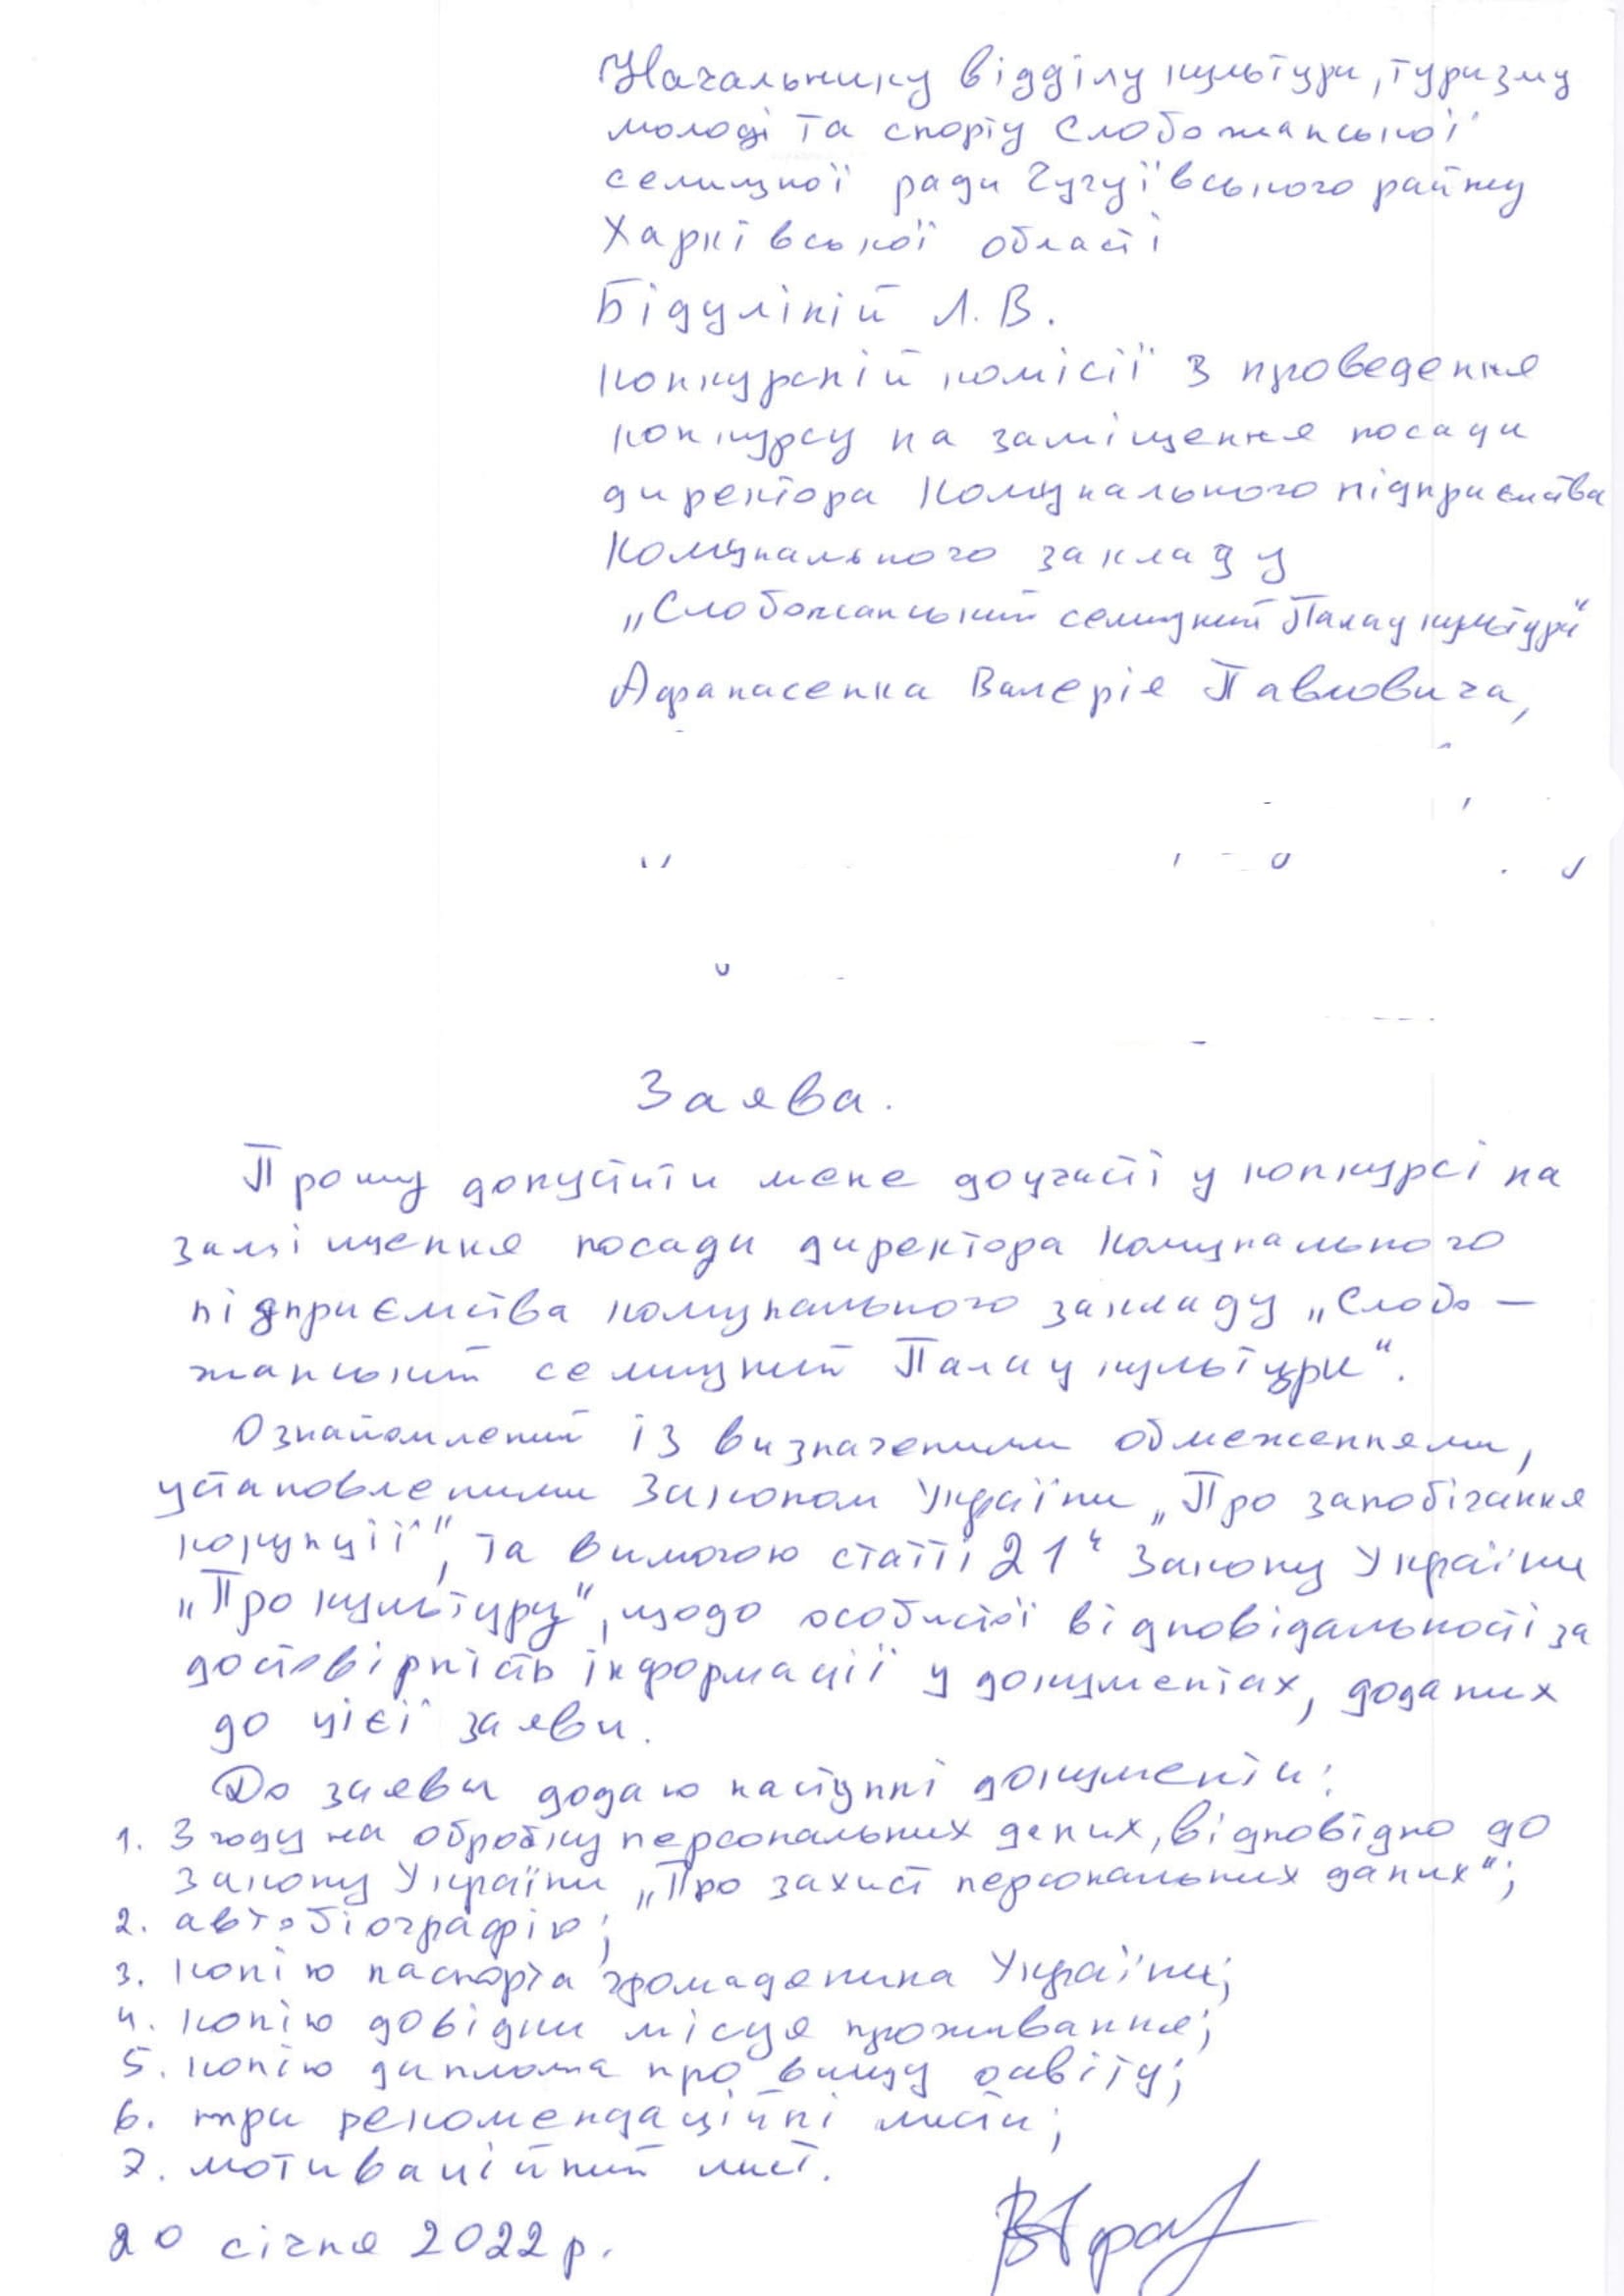 Начальнику відділу культури, туризму
молоді та спорту Слобожанської
селищної ради Чугуївського району
Харківської області
Бідуліній Л. В.
Конкурсній комісії з проведення
конкурсу на заміщення посади
директора Комунального підприємства
Комунального закладу
„Слобожанський селищний Палац культури"
Афанасенка Валерія Павловича,
Заява.
Прошу допустити мене до участі у конкурсі на
заміщення посади директора Комунального
підприємства комунального закладу „Слобо-
жанський селищний Палац культури".
Ознайомлений із визначеними обмеженнями,
установленими Законом України „Про запобігання
корупції", та вимогою статті 21⁴ Закону України
„Про культуру", щодо особистої відповідальності за
достовірність інформації у документах, доданих
до цієї заяви.
До заяви додаю наступні документи:
1. Згоду на обробку персональних даних, відповідно до
Закону України „Про захист персональних даних";
2. автобіографію;
3. копію паспорта громадянина України;
4. копію довідки місця проживання;
5. копію диплома про вищу освіту;
6. три рекомендаційні листи;
7. мотиваційний лист.
20 січня 2022 р.